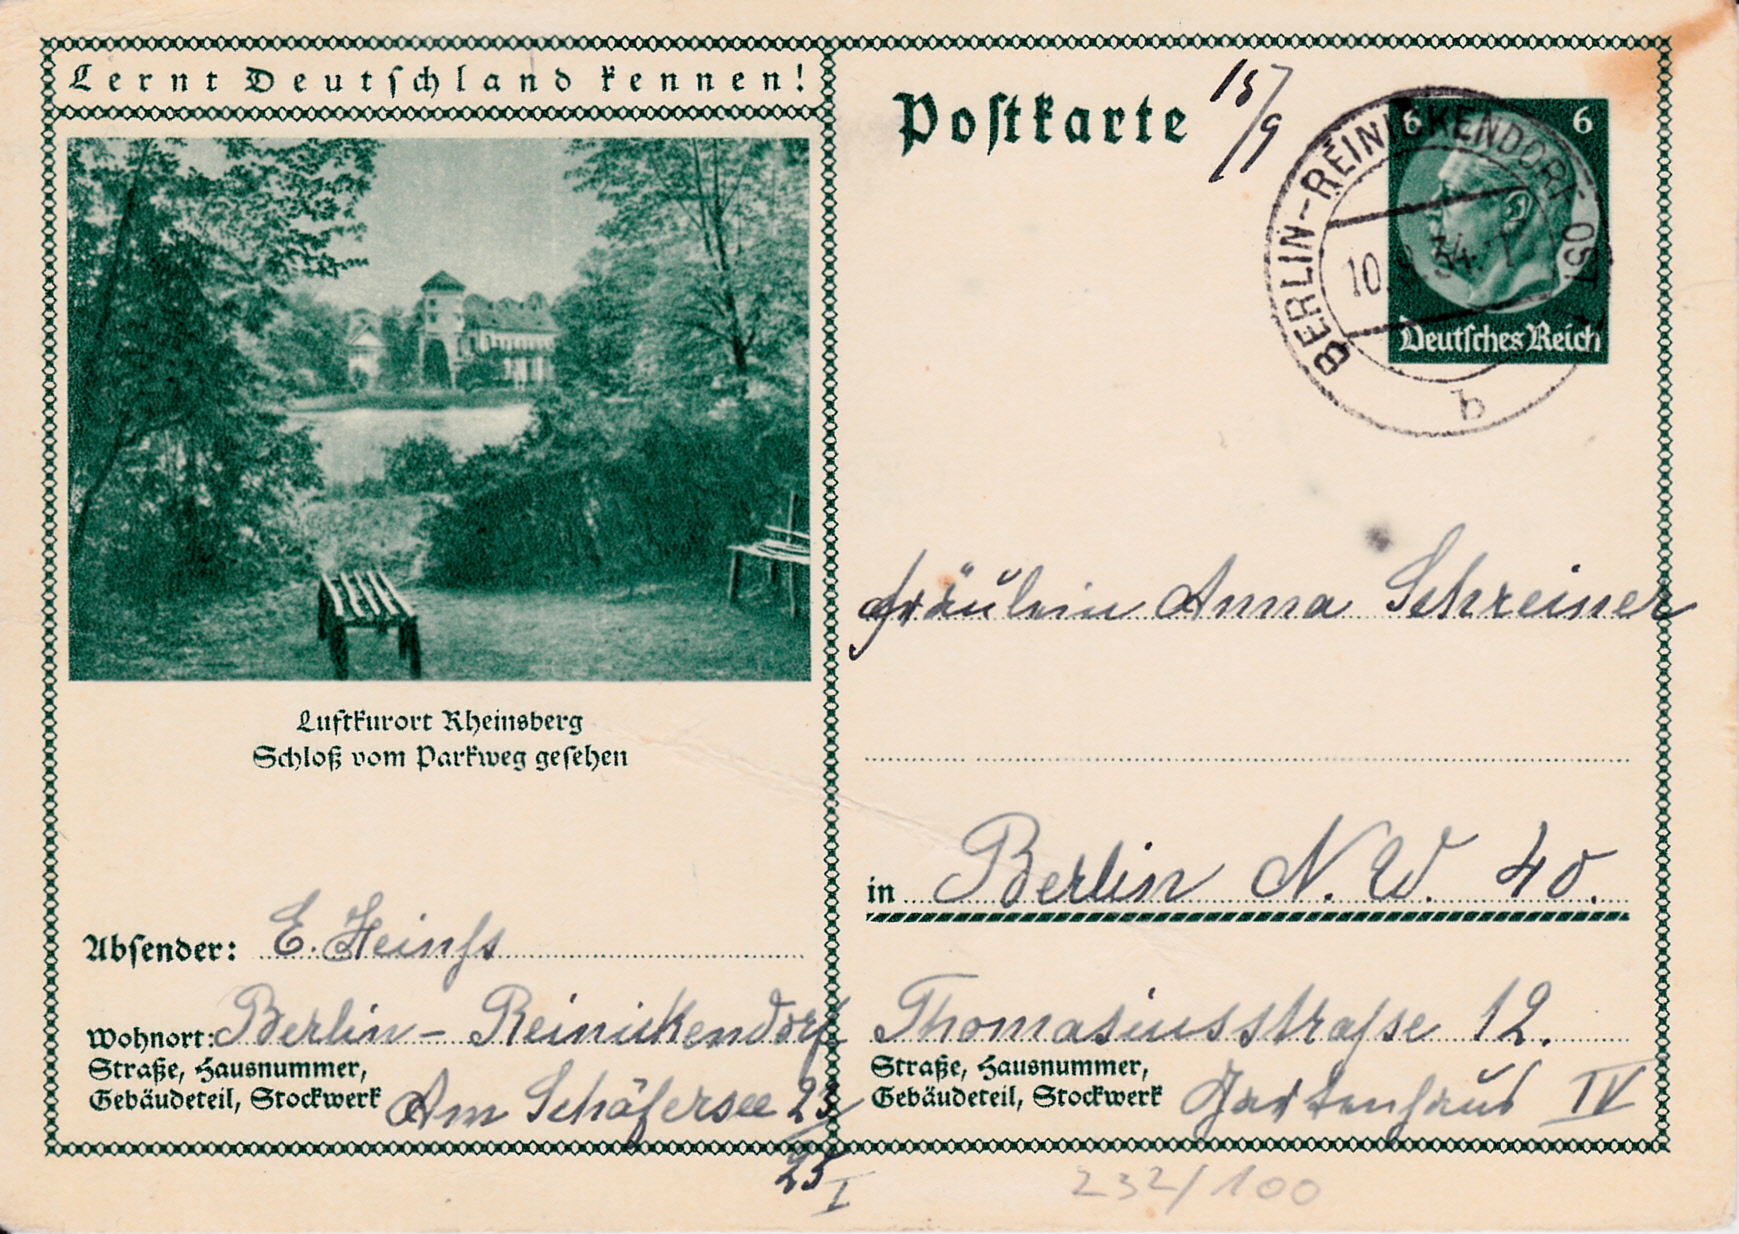 Lernt Deutschland kennen!
Luftkurort Rheinsberg
Schloß vom Parkweg gesehen
Absender: E. Heinhs
Wohnort: Berlin - Reinickendorf
Straße, Hausnummer,
Gebäudeteil, Stockwerk Am Schäfersee 23/
25 I
Postkarte
18/9
6 6
Deutsches Reich
BERLIN-REINICKENDORF OST
10. 9. 34.
b
Fräulein Anna Schreiner
in Berlin N.W. 40.
Thomasiusstraße 12.
Straße, Hausnummer,
Gebäudeteil, Stockwerk Gartenhaus IV
232/100